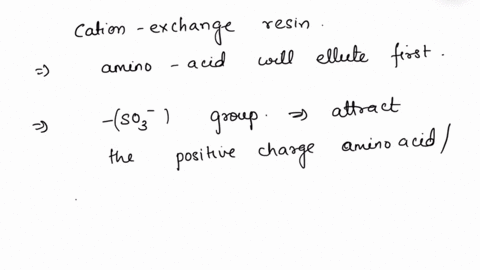 Cation-exchange resin.
⇒ amino-acid will ellute first.
⇒ -(SO₃⁻) group. ⇒ attract
the positive charge amino acid/